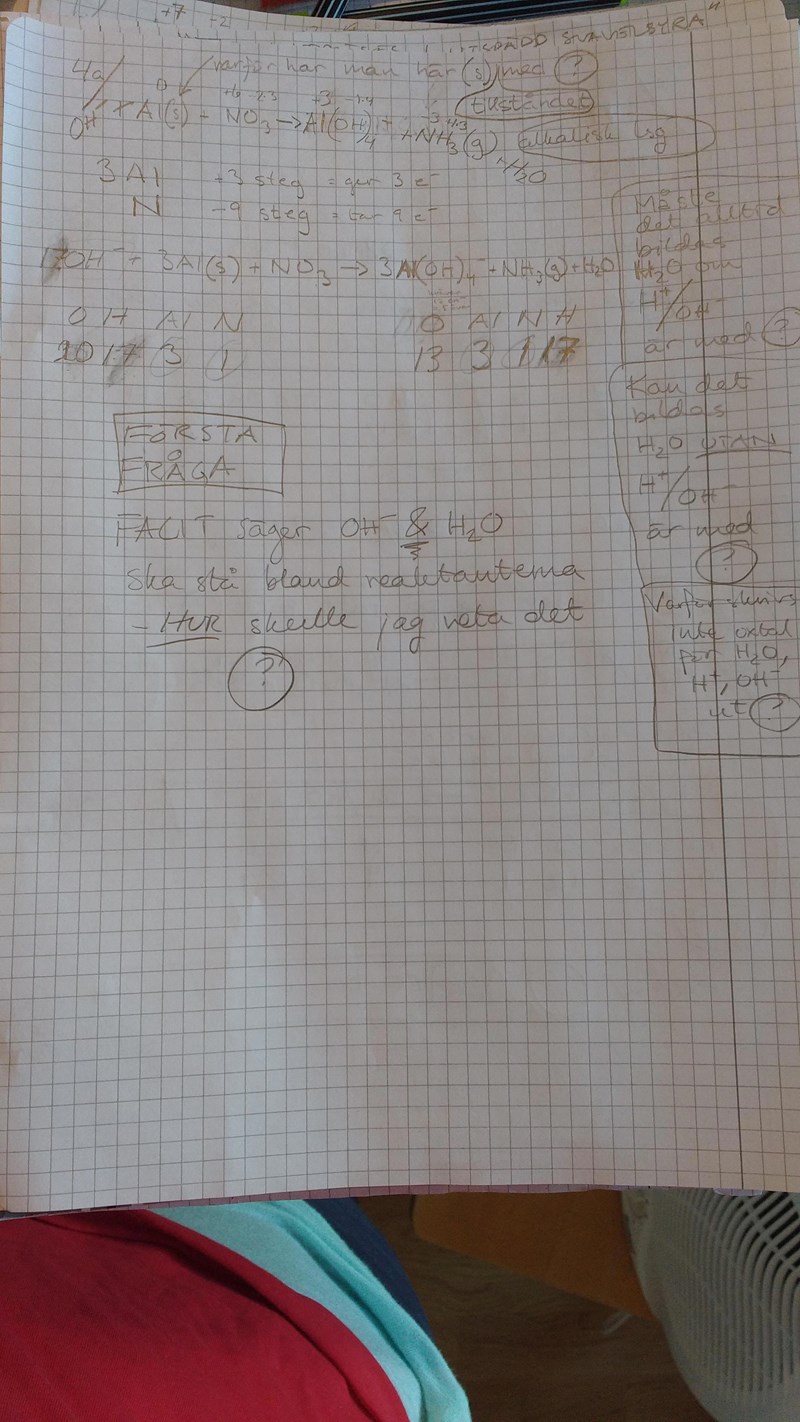 +7 -2
SVAVELSYRA"
4a/ varför har man här (s) med ?
tillståndet
0 +6 -2·3 +3 -1·4 -3
OH⁻ + Al(s) + NO₃ → Al(OH)₄⁻ + NH₃(g) alkalisk lsg
H₂O
3 Al +3 steg = ger 3 e⁻
N -9 steg = tar 9 e⁻
17OH⁻ + 3Al(s) + NO₃ → 3Al(OH)₄⁻ + NH₃(g) + H₂O
O H Al N O Al N H
20 17 3 1 13 3 1 17
FÖRSTA
FRÅGA
FACIT säger OH⁻ & H₂O
ska stå bland reaktanterna
- HUR skulle jag veta det
?
Måste
det alltid
bildas
H₂O om
H⁺/OH⁻
är med ?
Kan det
bildas
H₂O UTAN
H⁺/OH⁻
är med
?
Varför skrivs
inte oxtal
för H₂O,
H⁺, OH⁻
ut ?